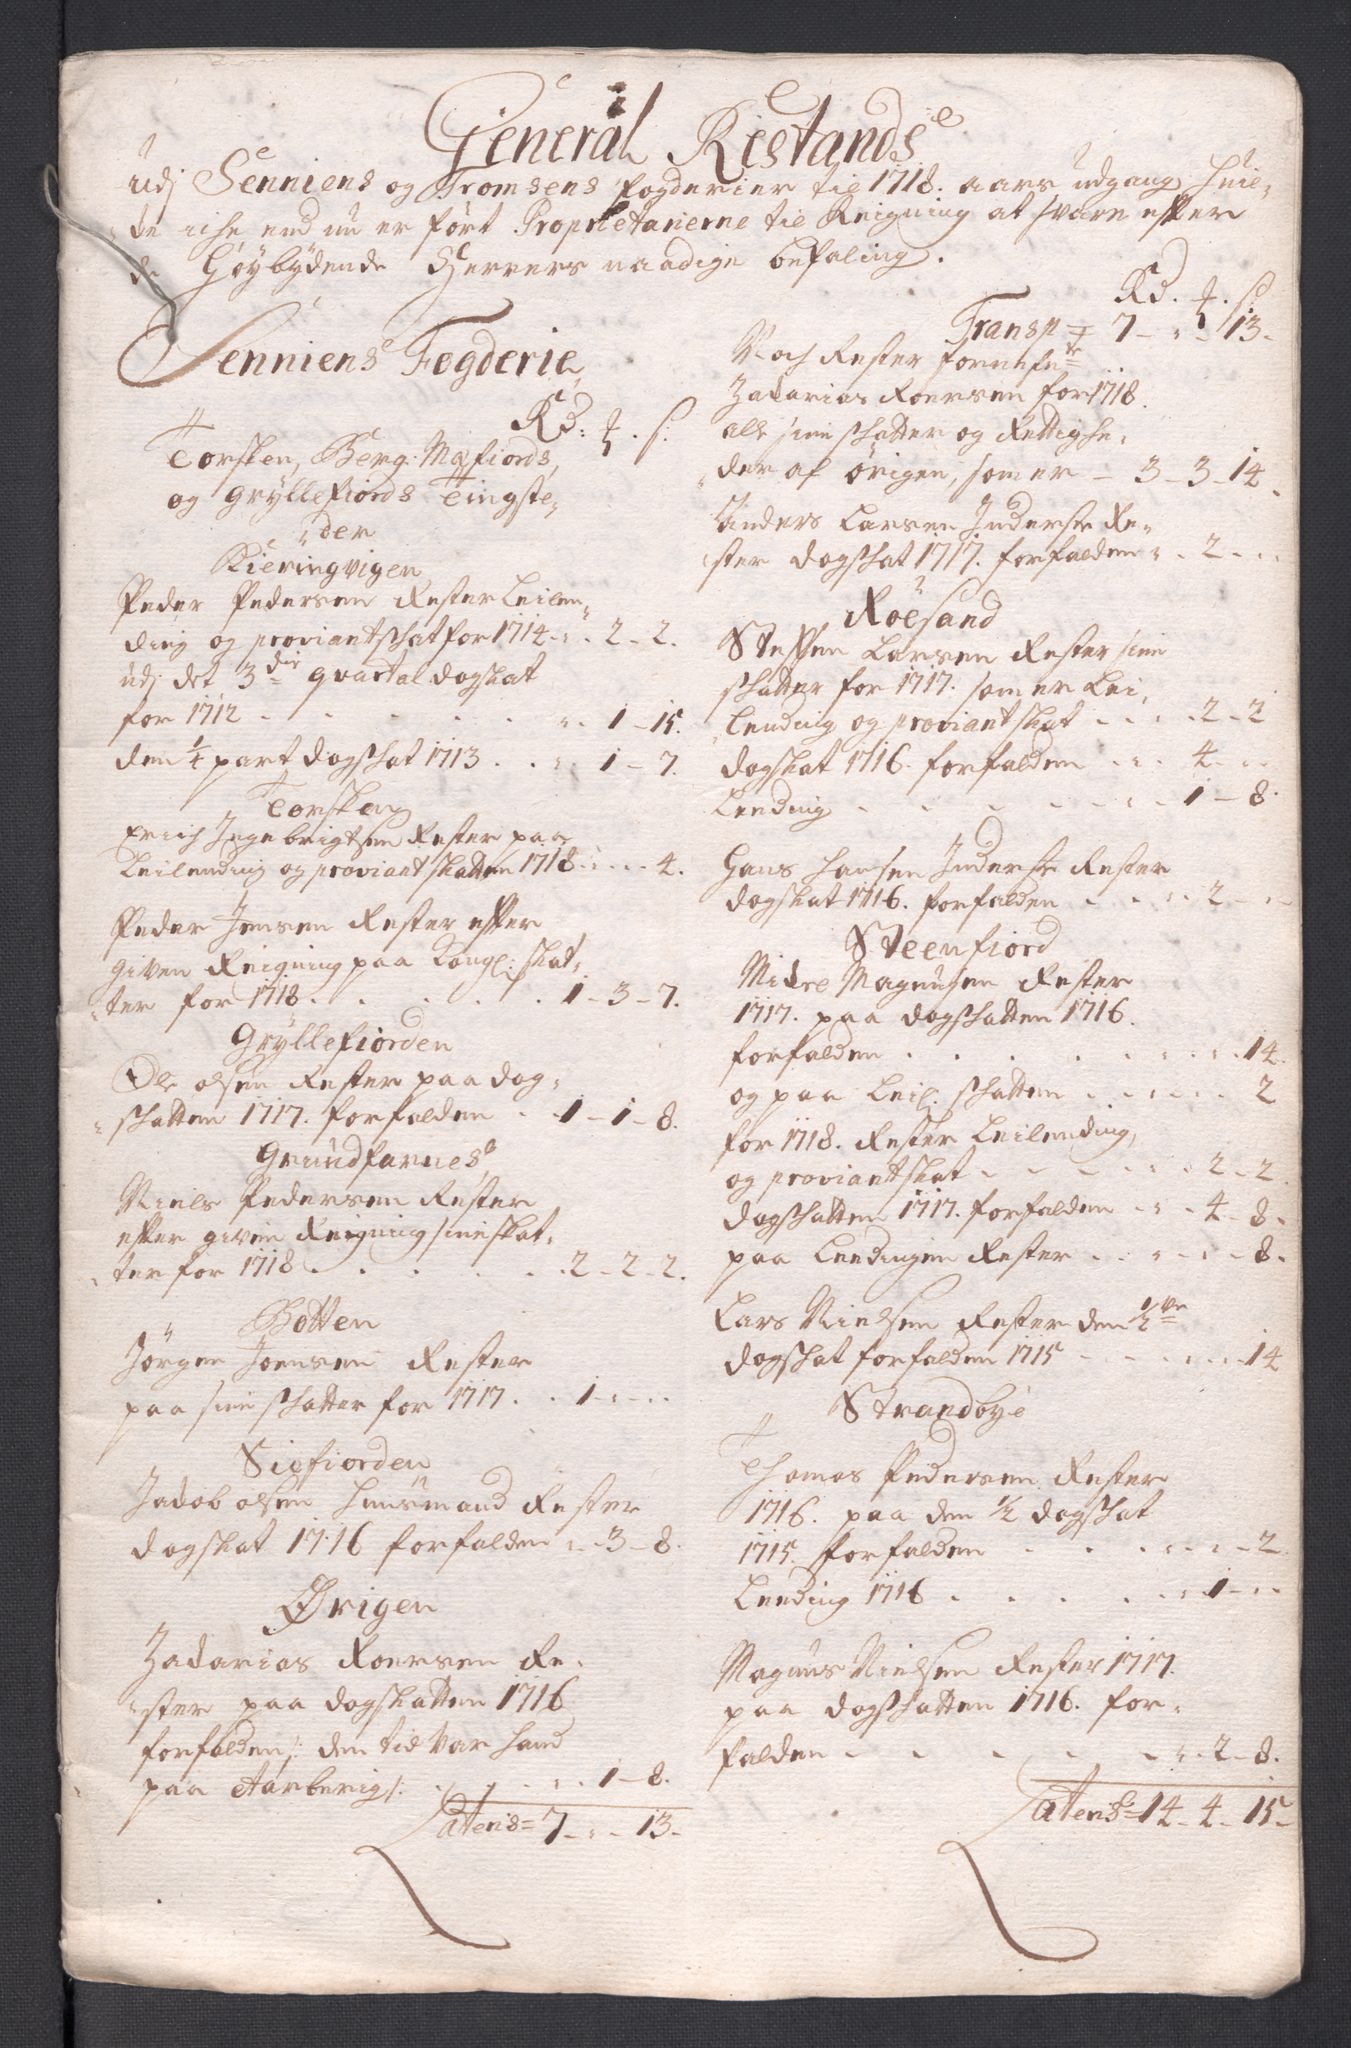 General Restands
udj Senniens og Tromsens fogderier til 1718. aars udgang, huil-
de iche end nu er ført Proprietarierne til Reigning at svare efter
de Høybydende Herrers naadige befaling.
Senniens Fogderie
Rd: ʒ . s:
Torsken, Berg: Mefiords,
og Gryllefiords Tingste-
der
Kieringvigen
Peder Pedersen Rester Leilen-
ding og proviantschat for 1714 - " - 2 - 2.
udj det 3die qvartal dogskat
for 1712 . . . . . " - 1 - 15.
den 1/4 part dogschat 1713 . . " - 1 - 7.
Torsken
Erich Ingebrigtsen Rester paa
Leilending og proviant skatten 1718 - " - " - 4.
Peder Jensen Rester efter
given Reigning paa Kongl: skat-
ter for 1718 . . . . . 1 - 3 - 7.
Gryllefiorden
Ole olsen Rester paa dog-
schatten 1717. forfalden . . 1 - 1 - 8.
Grundfarnes
Niels Pedersen Rester
efter given Reigning sine skat-
ter for 1718 . . . . . 2 - 2 - 2.
Botten
Jørgen Joensen Rester
paa sine schatter for 1717 . . 1 - " - "
Sifiorden
Jacob olsen Huusmand Rester
dogskat 1716 forfalden " - 3 - 8.
Ørigen
Zacarias Roersen Re-
ster paa dogskatten 1716
forfalden /: den tid var hand
paa Aarberig :/ . . " - 1 - 8.
Latens = 7 - " - 13 -
Rd. ʒ . s:
Transp = 7 - " - 13 -
Noch Rester fornefnte
Zacarias Roersen for 1718.
alle sine schatter og Rettighe-
der af Ørigen, som er - 3 - 3 - 14.
Anders Larsen Inderste Re-
ster dogschat 1717. forfalden " - 2 - "
Roesand
Steffen Larsen Rester sine
schatter for 1717. som er Lei-
lending og proviant skat . . " - 2 - 2
dogskat 1716. forfalden . . " - 4 - "
Leeding . . . . . " - 1 - 8.
Hans Hansen Inderste Rester
dogskat 1716. forfalden . . " - 2 - "
Steenfiord
Mickel Magnusen Rester
1717. paa dogschatten 1716.
forfalden . . . . . " - " - 14.
og paa Leil. schatten . . . " - " - 2
for 1718. Rester Leilending,
og proviantskat . . . . " - 2 - 2.
dogschatten 1717. forfalden . " - 4 - 8.
paa Leedingen Rester . . " - " - 8.
Lars Nielsen Rester den 1/2ve
dogschat forfalden 1715 - - " - " - 14
Strandbye
Thomas Pedersen Rester
1716. paa den 1/2 dogschat
1715. forfalden . . . . " - " - 2
Leeding 1716 . . . . . " - 1 - "
Magnus Nielsen Rester 1717.
paa dogschatten 1716. for-
falden . . . . . " - 2 - 8.
Latens = 14 - 4 - 15 -